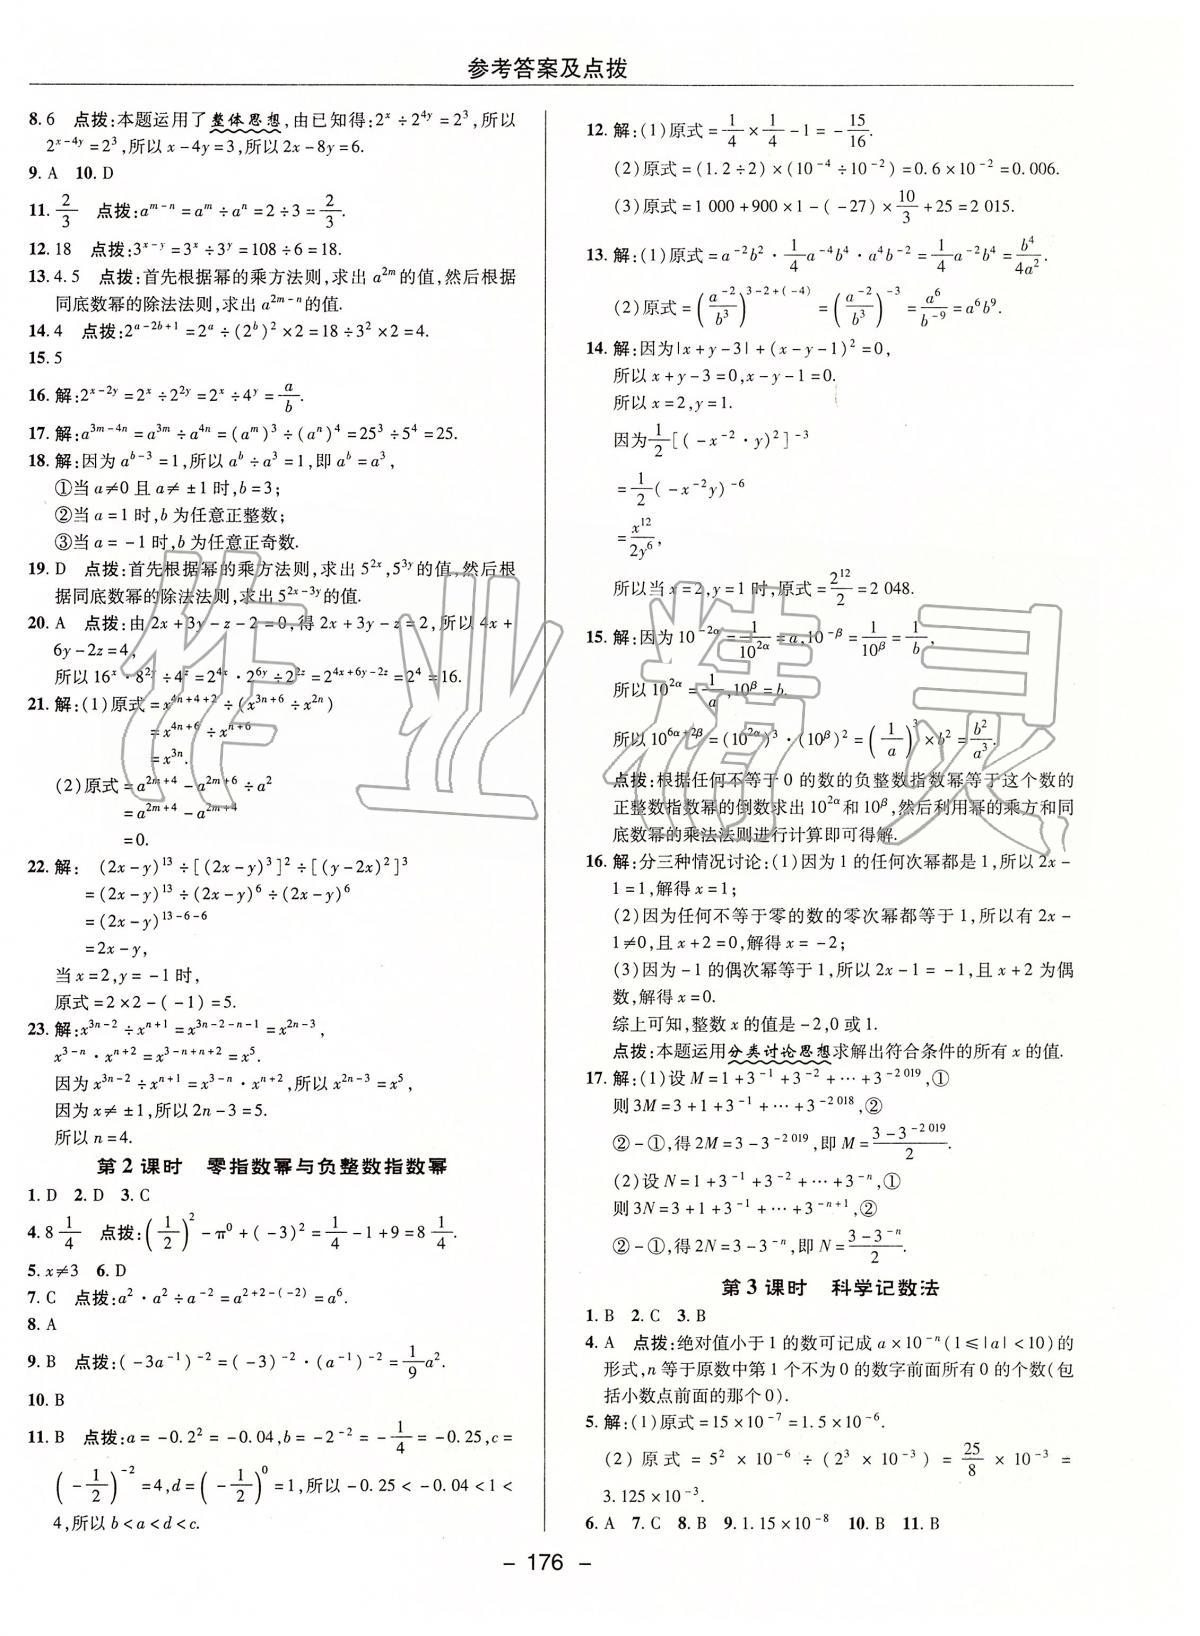 参考答案及点拨
8. 6 点拨:本题运用了整体思想,由已知得:2^x÷2^{4y}=2^3,所以
2^{x-4y}=2^3,所以 x-4y=3,所以 2x-8y=6.
9. A 10. D
11. 2/3 点拨:a^{m-n}=a^m÷a^n=2÷3=2/3.
12. 18 点拨:3^{x-y}=3^x÷3^y=108÷6=18.
13. 4.5 点拨:首先根据幂的乘方法则,求出 a^{2m}的值,然后根据
同底数幂的除法法则,求出 a^{2m-n}的值.
14. 4 点拨:2^{a-2b+1}=2^a÷(2^b)^2×2=18÷3^2×2=4.
15. 5
16. 解:2^{x-2y}=2^x÷2^{2y}=2^x÷4^y=a/b.
17. 解:a^{3m-4n}=a^{3m}÷a^{4n}=(a^m)^3÷(a^n)^4=25^3÷5^4=25.
18. 解:因为 a^{b-3}=1,所以 a^b÷a^3=1,即 a^b=a^3,
①当 a≠0 且 a≠±1 时,b=3;
②当 a=1 时,b 为任意正整数;
③当 a=-1 时,b 为任意正奇数.
19. D 点拨:首先根据幂的乘方法则,求出 5^{2x},5^{3y}的值,然后根
据同底数幂的除法法则,求出 5^{2x-3y}的值.
20. A 点拨:由 2x+3y-z-2=0,得 2x+3y-z=2,所以 4x+
6y-2z=4,
所以 16^x·8^{2y}÷4^z=2^{4x}·2^{6y}÷2^{2z}=2^{4x+6y-2z}=2^4=16.
21. 解:(1)原式=x^{4n+4+2}÷(x^{3n+6}÷x^{2n})
=x^{4n+6}÷x^{n+6}
=x^{3n}.
(2)原式=a^{2m+4}-a^{2m+6}÷a^2
=a^{2m+4}-a^{2m+4}
=0.
22. 解: (2x-y)^{13}÷[(2x-y)^3]^2÷[(y-2x)^2]^3
=(2x-y)^{13}÷(2x-y)^6÷(2x-y)^6
=(2x-y)^{13-6-6}
=2x-y,
当 x=2,y=-1 时,
原式=2×2-(-1)=5.
23. 解:x^{3n-2}÷x^{n+1}=x^{3n-2-n-1}=x^{2n-3},
x^{3-n}·x^{n+2}=x^{3-n+n+2}=x^5.
因为 x^{3n-2}÷x^{n+1}=x^{3-n}·x^{n+2},所以 x^{2n-3}=x^5,
因为 x≠±1,所以 2n-3=5.
所以 n=4.
第 2 课时 零指数幂与负整数指数幂
1. D 2. D 3. C
4. 8 1/4 点拨:(1/2)^2-π^0+(-3)^2=1/4-1+9=8 1/4.
5. x≠3 6. D
7. C 点拨:a^2·a^2÷a^{-2}=a^{2+2-(-2)}=a^6.
8. A
9. B 点拨:(-3a^{-1})^{-2}=(-3)^{-2}·(a^{-1})^{-2}=1/9 a^2.
10. B
11. B 点拨:a=-0.2^2=-0.04,b=-2^{-2}=-1/4=-0.25,c=
(-1/2)^{-2}=4,d=(-1/2)^0=1,所以 -0.25<-0.04<1<
4,所以 b<a<d<c.
12. 解:(1)原式=1/4×1/4-1=-15/16.
(2)原式=(1.2÷2)×(10^{-4}÷10^{-2})=0.6×10^{-2}=0.006.
(3)原式=1 000+900×1-(-27)×10/3+25=2 015.
13. 解:(1)原式=a^{-2}b^2·1/4 a^{-4}b^4·a^4b^{-2}=1/4 a^{-2}b^4=b^4/4a^2.
(2)原式=(a^{-2}/b^3)^{3-2+(-4)}=(a^{-2}/b^3)^{-3}=a^6/b^{-9}=a^6b^9.
14. 解:因为|x+y-3|+(x-y-1)^2=0,
所以 x+y-3=0,x-y-1=0.
所以 x=2,y=1.
因为 1/2[(-x^{-2}·y)^2]^{-3}
=1/2(-x^{-2}y)^{-6}
=x^{12}/2y^6,
所以当 x=2,y=1 时,原式=2^{12}/2=2 048.
15. 解:因为 10^{-2α}=1/10^{2α}=a,10^{-β}=1/10^β=1/b,
所以 10^{2α}=1/a,10^β=b.
所以 10^{6α+2β}=(10^{2α})^3·(10^β)^2=(1/a)^3×b^2=b^2/a^3.
点拨:根据任何不等于 0 的数的负整数指数幂等于这个数的
正整数指数幂的倒数求出 10^{2α}和 10^β,然后利用幂的乘方和同
底数幂的乘法法则进行计算即可得解.
16. 解:分三种情况讨论:(1)因为 1 的任何次幂都是 1,所以 2x-
1=1,解得 x=1;
(2)因为任何不等于零的数的零次幂都等于 1,所以有 2x-
1≠0,且 x+2=0,解得 x=-2;
(3)因为 -1 的偶次幂等于 1,所以 2x-1=-1,且 x+2 为偶
数,解得 x=0.
综上可知,整数 x 的值是 -2,0 或 1.
点拨:本题运用分类讨论思想求解出符合条件的所有 x 的值.
17. 解:(1)设 M=1+3^{-1}+3^{-2}+…+3^{-2 019},①
则 3M=3+1+3^{-1}+…+3^{-2 018},②
②-①,得 2M=3-3^{-2 019},即 M=(3-3^{-2 019})/2.
(2)设 N=1+3^{-1}+3^{-2}+…+3^{-n},①
则 3N=3+1+3^{-1}+…+3^{-n+1},②
②-①,得 2N=3-3^{-n},即 N=(3-3^{-n})/2.
第 3 课时 科学记数法
1. B 2. C 3. B
4. A 点拨:绝对值小于 1 的数可记成 a×10^{-n}(1≤|a|<10)的
形式,n 等于原数中第 1 个不为 0 的数字前面所有 0 的个数(包
括小数点前面的那个 0).
5. 解:(1)原式=15×10^{-7}=1.5×10^{-6}.
(2)原式=5^2×10^{-6}÷(2^3×10^{-3})=25/8×10^{-3}=
3.125×10^{-3}.
6. A 7. C 8. B 9. 1.15×10^{-8} 10. B 11. B
- 176 -
作业精灵